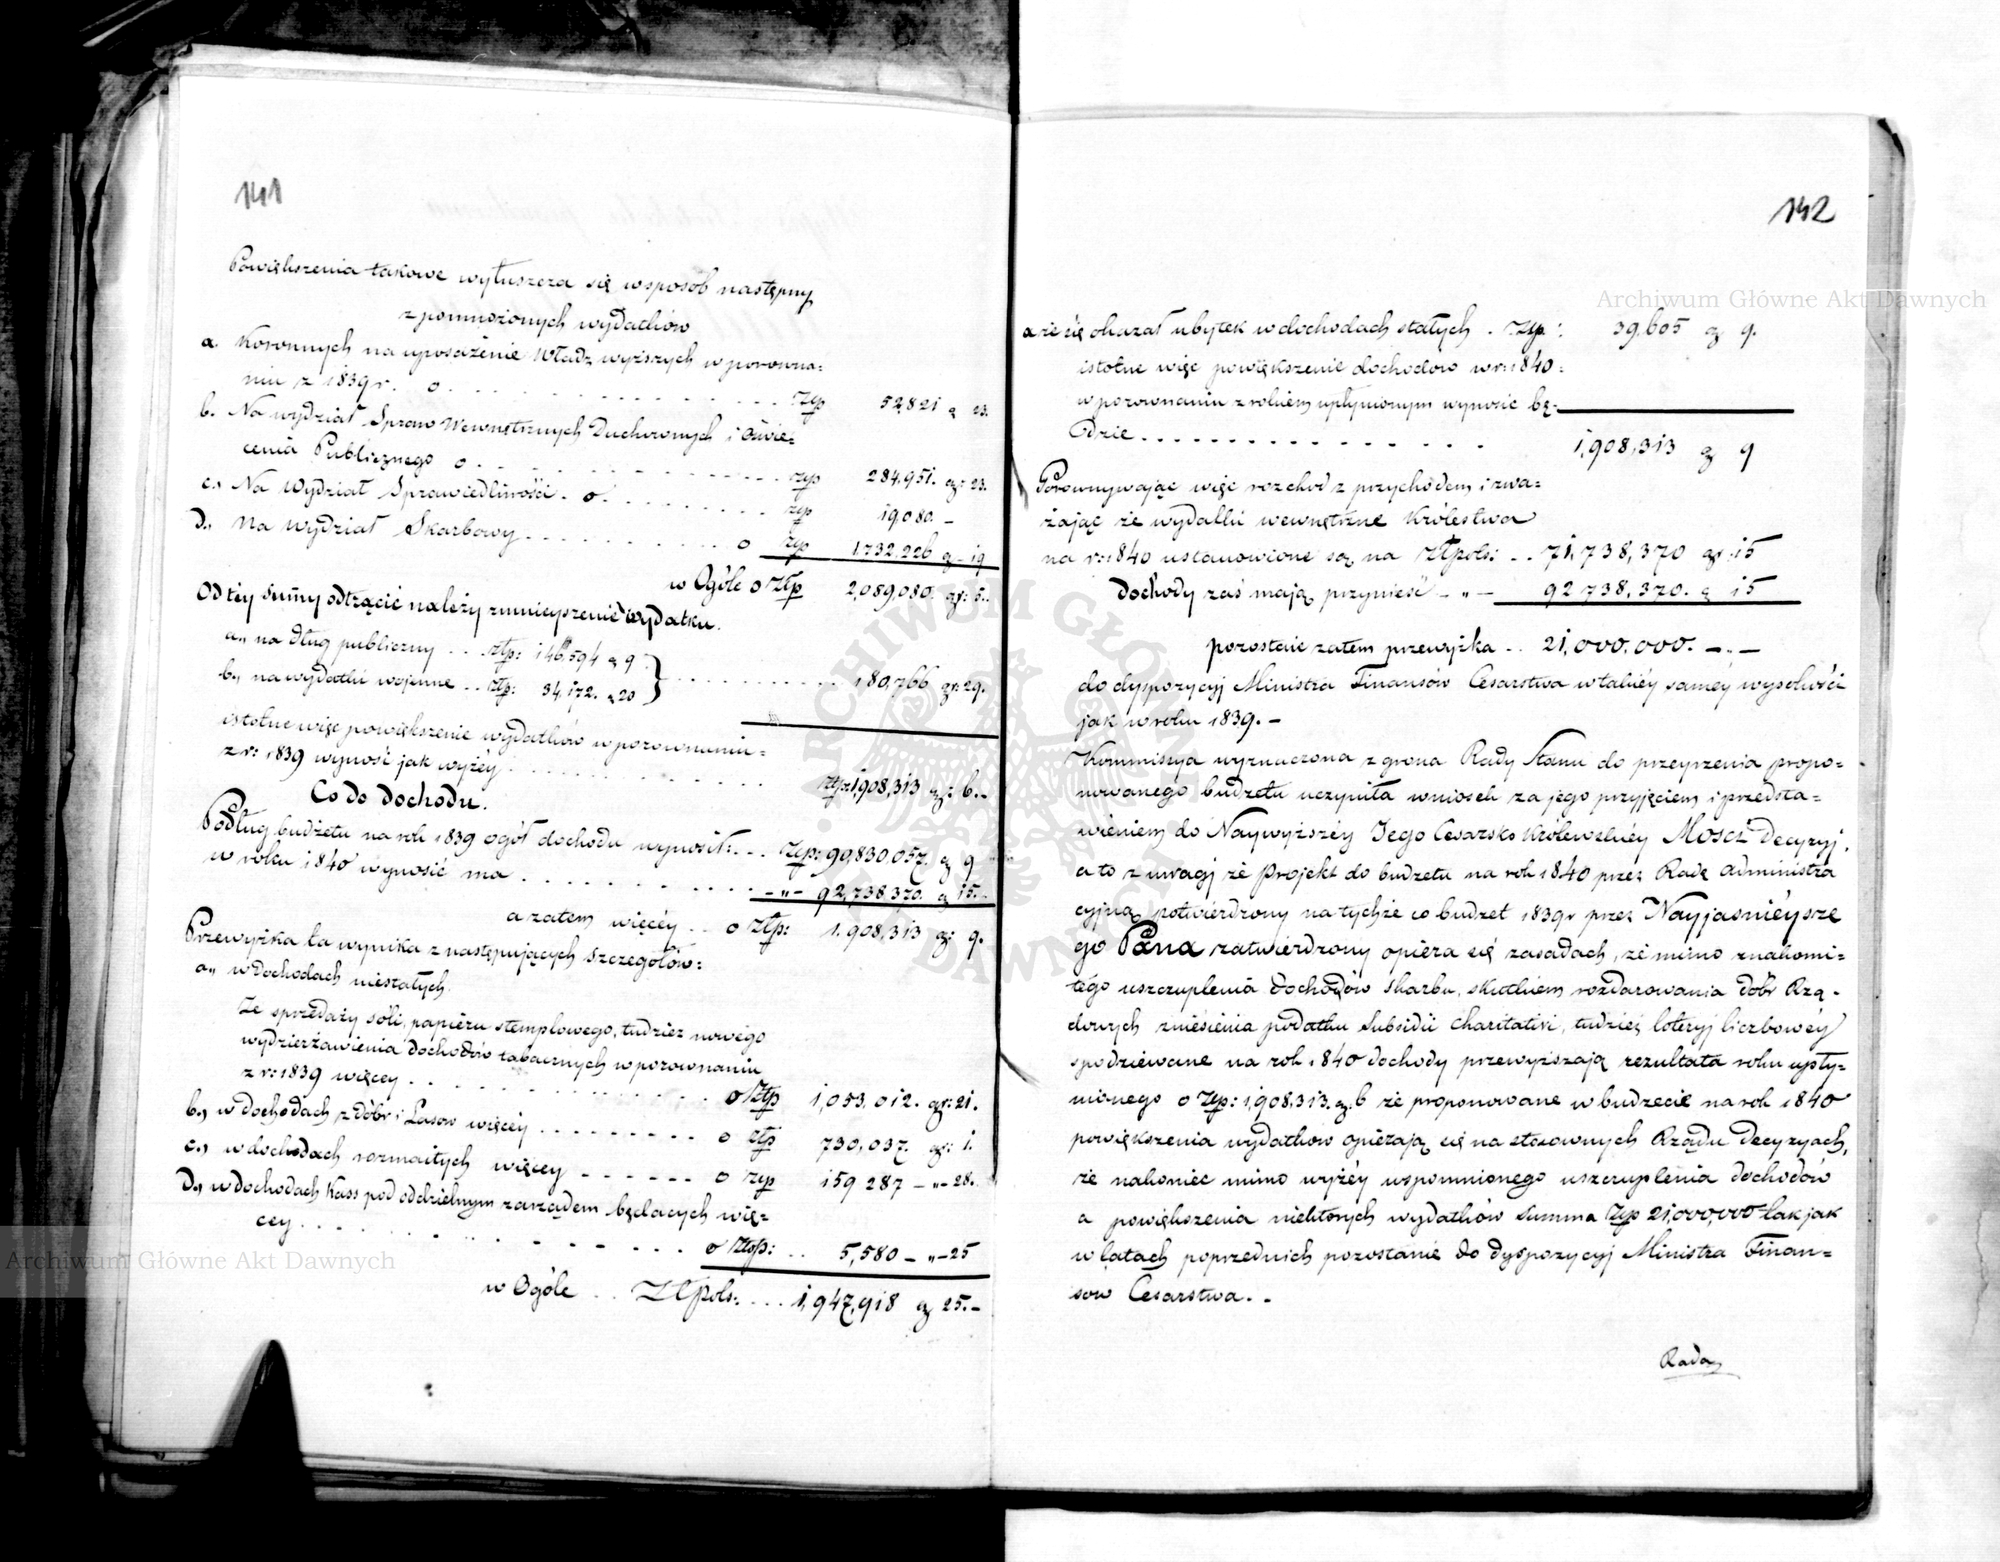 141
Powiększenia takowe wyłuszcza się wsposób następny
z pomnożonych wydatków
a. Koronnych na uposażenie Władz wyższych w porowna=
niu z 1839 r. o . . . . . Złp 52,821 g 23.
b. Na wydział Spraw Wewnętrznych Duchownych i Oświe=
cenia Publicznego o . . . . . złp 284,951. gr: 23.
c., Na Wydział Sprawiedliwości . o . . . . . złp 19,080. –
d., Na wydział Skarbowy . . . . . o złp 1,732,226 g – 19
w Ogóle o Złp 2,089,080. gr: 5..
Od tey summy odtrącić należy zmnieyszenie wydatku.
a„ na dług publiczny . . złp: 146,594 g 9
b., na wydatki wojenne . . złp: 34,172. „ 20 } . . . . . 180,766 gr: 29.
istotne więc powiększenie wydatków w porownaniu=
z r: 1839 wynosć jak wyżey . . . . . złp: 1,908,313 gr: 6.–
Co do dochodu.
Podług budżetu na rok 1839 ogół dochodu wynosił: . . . złp: 90,830,057. g 9
w roku 1840 wynosić ma . . . . . – „ – 92,738,370. g 15.–
a zatem więcéy . . o złp: 1,908,313 gr: 9.
Przewyżka ta wynika z następujących szczegółów:
a„ w dochodach niestałych.
Ze sprzedaży soli, papieru stemplowego, tudzież nowégo
wydzierżawienia dochodów tabacznych w porownaniu
z r: 1839 więcey . . . . . o Złp 1,053,012. gr: 21.
b., w dochodach z dóbr i Lasow więcéy . . . . . o złp 730,037. gr: 1.
c., w dochodach rozmaitych więcey . . . . . o złp 159 287 – „ – 28.
d., w dochodach Kass pod oddzielnym zarządem będących wię=
cey . . . . . o Złp: . . 5,580 – „ – 25
w Ogóle . . Złpols: . . . 1,947,918 g 25.–
142
a że się okazał ubytek w dochodach stałych . Złp: 39,605 g 9.
istotne więc powiększenie dochodow w r: 1840=
w porownaniu z rokiem upłynionym wynosić bę=
dzie . . . . . 1,908,313 g 9
Porownywając więc rozchod z przychodem i zwa=
żając że wydatki wewnętrzne Królestwa
na r: 1840 ustanowione są na Złpols: . . 71,738,370 gr: 15
dochody zaś mają przynieść – „ – 92 738,370. g 15
pozostaie zatem przewyżka . . 21,000,000. – „ –
do dyspozycyj Ministra Finansów Cesarstwa w takiéy saméy wysokości
jak w roku 1839. –
Kommissya wyznaczona z grona Rady Stanu do przeyrzenia propo=
nowanego budżetu uczyniła wniosek za jego przyjęciem i przedsta=
wieniem do Naywyższéy Jego Cesarsko Królewskiéy Mosci Decyzyj,
a to z uwagj że Projekt do budżetu na rok 1840 przez Radę Administra
cyjną potwierdzony na tychże co budżet 1839 r przez Nayjaśniéysze
go Pana zatwierdzony opiera się zasadach, że mimo znakomi=
tego uszczuplenia dochodów skarbu, skutkiem rozdarowania dóbr Rzą=
dowych zniesienia podatku Subsidii Charitativi, tudzież loteryj liczbowéy
spodziewane na rok 1840 dochody przewyższają rezultata roku upły=
nionego o Złp: 1,908,313. g. 6 że proponowane w budżecie na rok 1840
powiększenia wydatkow opierają się na stosownych Rządu decyzyach,
że nakoniec mimo wyżéy wspomnionego uszczuplenia dochodów
a powiększenia niektórych wydatków Summa Złp 21,000,000 tak jak
w latach poprzednich pozostanie do dyspozycyj Ministra Finan=
sow Cesarstwa. –
Rada
Archiwum Główne Akt Dawnych
Archiwum Główne Akt Dawnych
ARCHIWUM GŁÓWNE AKT DAWNYCH